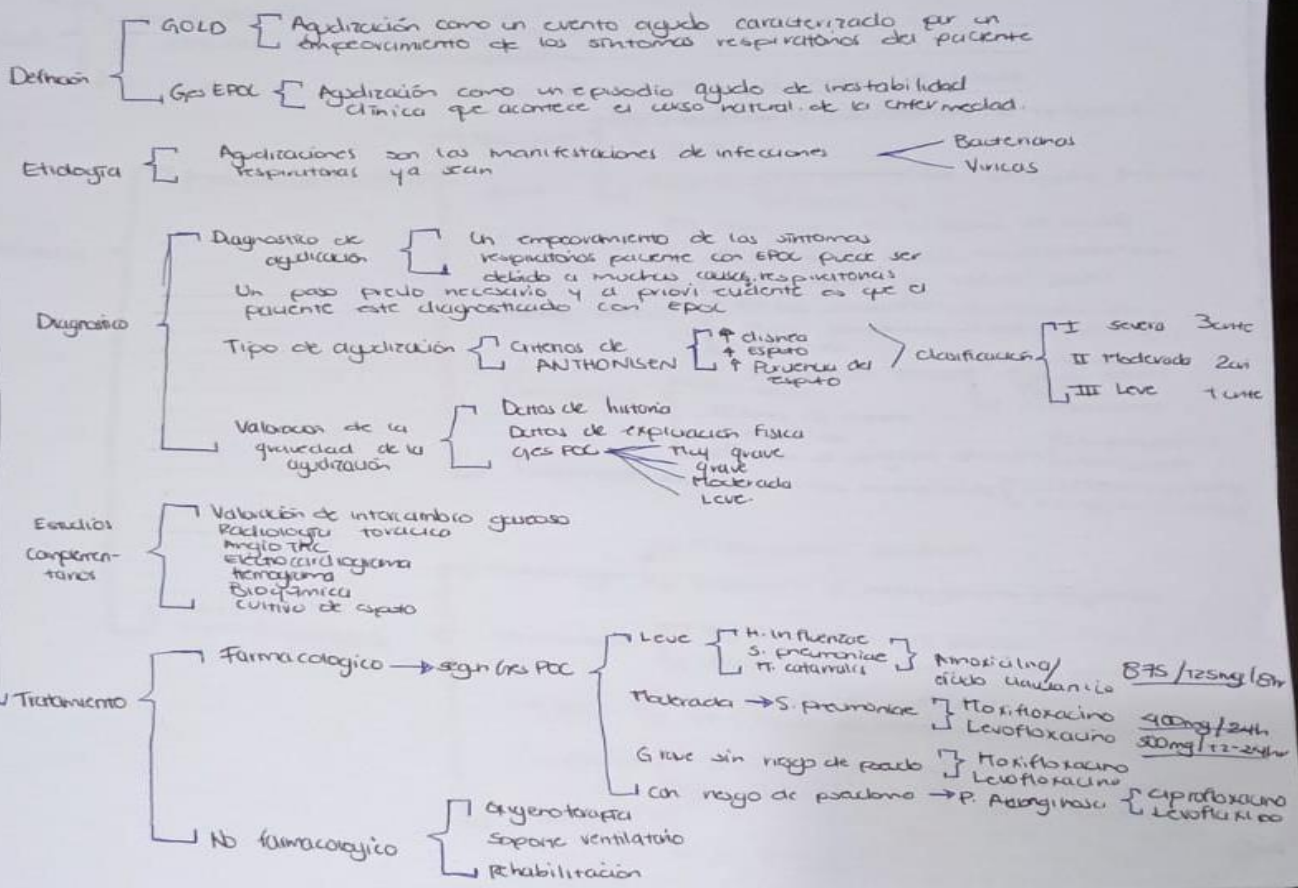 Definción
GOLD
Agudización como un evento agudo caracterizado por un
empeoramiento de los síntomas respiratorios del paciente
Ges EPOC
Agudización como un episodio agudo de inestabilidad
clínica que acontece el curso natural de la enfermedad.
Etiología
Agudizaciones son las manifestaciones de infecciones
respiratorias ya sean
Bacterianas
Viricas
Diagnostico
Diagnostico de
agudización
Un empeoramiento de los síntomas
respiratorios paciente con EPOC puede ser
debido a muchas causas respiratorias
Un paso previo necesario y a priori evidente es que el
paciente este diagnosticado con EPOC
Tipo de agudización
Criterios de
ANTHONISEN
↑ disnea
↑ esputo
↑ Purulencia del
esputo
Clasificación
I severa 3crite
II Moderado 2cri
III Leve 1 crite
Valoración de la
gravedad de la
agudización
Datos de historia
Datos de exploración Fisica
Ges POC
Muy grave
grave
Moderada
Leve
Estudios
complemen-
tarios
Valoración de intercambio gaseoso
Radiología toracica
Angio TAC
Electrocardiograma
Hemograma
Bioquímica
cultivo de esputo
Tratamiento
Farmacologico → segn Ges POC
Leve
H. influenzae
S. pneumoniae
M. catarralis
Amoxicilina/
ácido clavulanico
875/125mg/8hr
Moderada → S. pneumoniae
Moxifloxacino 400mg/24h
Levofloxacino 500mg/12-24hr
Grave sin riesgo de pseudo
Moxifloxacino
Levofloxacino
con riesgo de pseudomo → P. Aeruginosa
Ciprofloxacino
Levofloxino
No farmacologico
Oxigenoterapia
Soporte ventilatorio
Rehabilitación